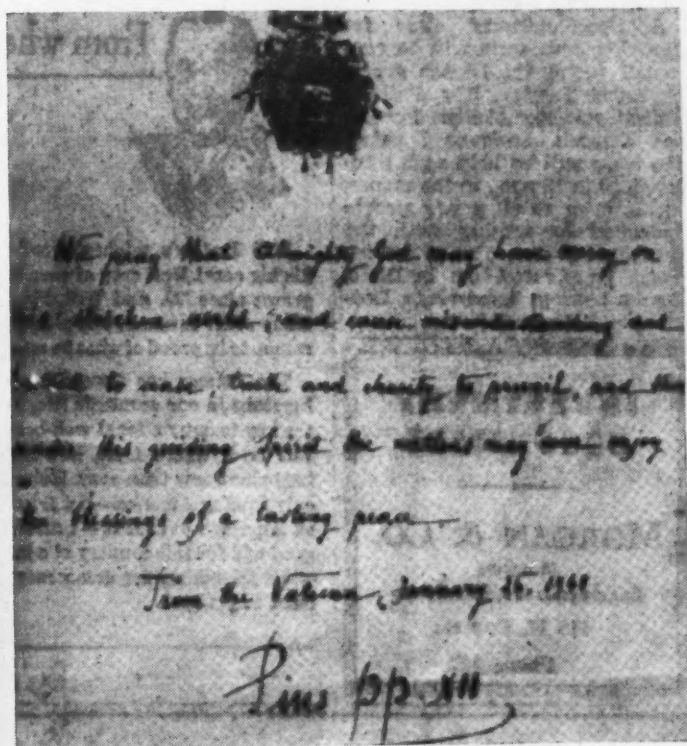 From whe
We pray that Almighty God may have mercy on
stricken world, and cause misunderstanding and
hatred to cease, truth and charity to prevail, and that
under His guiding Spirit the nations may soon enjoy
the blessings of a lasting peace
From the Vatican, January
Pius pp. XII
MORGAN & CO